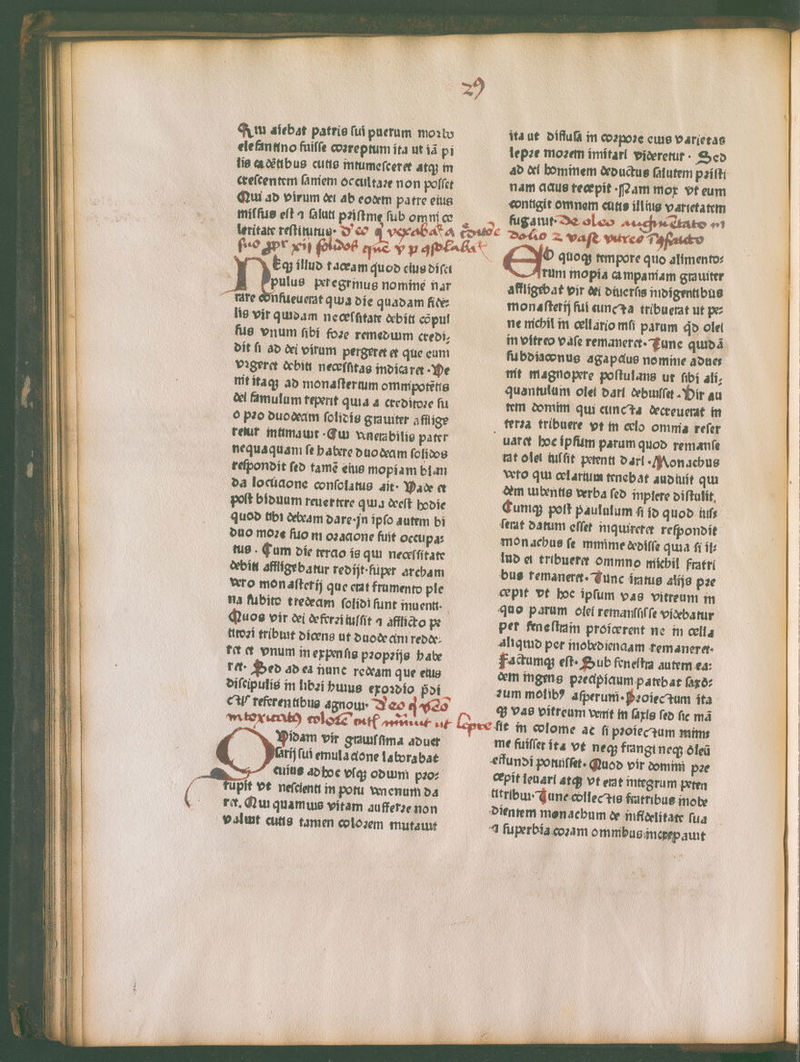 29
Qui aiebat patris sui puerum morbo
elefantino fuisse correptum ita ut iā pi
lis cadētibus cutis intumesceret atqꝫ in
crescentem saniem occultare non posset
Qui ad virum dei ab eodem patre eius
missus est ⁊ saluti pristine sub omni ce
leritate restitutus· De eo q̇ vexabat̃ a c̄ditoē
suo
Neqꝫ illud taceam quod eius disci
pulus peregrinus nomine nar
rare consueuerat quia die quadam fide⸗
lis vir quidam necessitate debiti cōpul
sus vnum sibi fore remedium credi⸗
dit si ad dei virum pergeret et que eum
vrgeret debiti necessitas indicaret ·Ve
nit itaqꝫ ad monasterium omnipotētis
dei famulum reperit quia a creditore su
o pro duodecim solidis grauiter afflige
retur intimauit ·Cui venerabilis pater
nequaquam se habere duodecim solidos
respondit sed tamē eius mopiam blan
da locucione consolatus ait· Vade et
post biduum reuertere quia deest hodie
quod tibi debeam dare·jn ipso autem bi
duo more suo in oracione fuit occupa⸗
tus · Cum die tercio is qui necessitate
debiti affligebatur redijt·super archam
vero monasterij que erat frumento ple
na subito tredecim solidi sunt inuenti·
Quos vir dei deferri iussit ⁊ afflicto pe
titori tribuit dicens ut duodecim redde⸗
ret et vnum in expensis proprijs habe
ret· Sed ad ea nunc redeam que eius
discipulis in libri huius exordio p̄di
ctis referentibus agnoui· De eo q̇
Quidam vir grauissima aduer
sarij sui emulacione laborabat
cuius ad hoc vsqꝫ odium pro⸗
rupit vt nescienti in potu venenum da
ret. Qui quamuis vitam aufferre non
valuit cutis tamen colorem mutauit
ita ut diffusa in corpore eius varietas
lepre morem imitari videretur · Sed
ad dei hominem deductus salutem pristi
nam cicius recepit ·Nam mox vt eum
contigit omnem cutis illius varietatem
fugauit· De oleo augmētato in
dolio ⁊ vase vitreo
Eo quoqꝫ tempore quo alimento⸗
rum inopia campaniam grauiter
affligebat vir dei diuersis indigentibus
monasterij sui cuncta tribuerat ut pe⸗
ne nichil in cellario nisi parum q̄d olei
in vitreo vase remaneret· Tunc quidā
subdiaconus agapitus nomine aduer
nit magnopere postulans ut sibi ali⸗
quantulum olei dari debuisset ·Vir au
tem domini qui cuncta decreuerat in
terra tribuere vt in celo omnia reser
uaret hoc ipsum parum quod remanse
rat olei iussit petenti dari ·Monachus
vero qui celarium tenebat audiuit qui
dem iubentis verba sed inplere distulit,
Cumqꝫ post paululum si id quod iuss⸗
serat datum esset inquireret respondit
monachus se minime dedisse quia si il⸗
lud ei tribueret omnino nichil fratri
bus remaneret· Tunc iratus alijs pre
cepit vt hoc ipsum vas vitreum in
quo parum olei remansisse videbatur
per fenestram proicerent ne in cella
aliquid per inobedienciam remaneret·
Factumqꝫ est· Sub fenestra autem ea⸗
dem ingens precipicium patebat saxo⸗
rum molibꝰ asperum· Proiectum ita
qꝫ vas vitreum venit in saxis sed sic mā
sit in colome ac si proiectum mini⸗
me fuisset ita vt neqꝫ frangi neqꝫ oleū
effundi potuisset· Quod vir domini pre
cepit leuari atqꝫ vt erat integrum peten
ti tribui· Tunc collectis fratribus inobe
dientem monachum de infidelitate sua
⁊ superbia coram omnibus increpauit